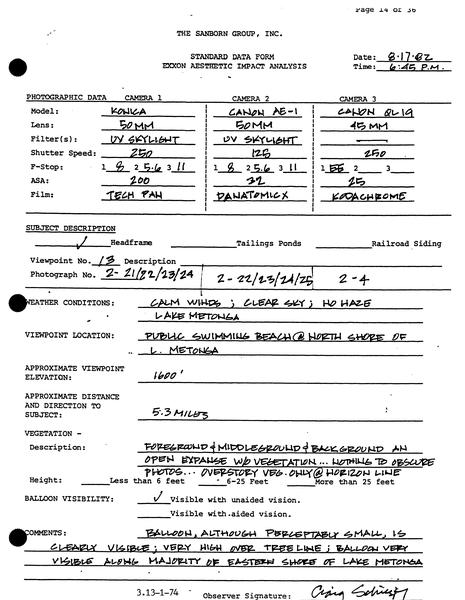 Page 14 of 36
THE SANBORN GROUP, INC.
STANDARD DATA FORM
EXXON AESTHETIC IMPACT ANALYSIS
Date: 8-17-82
Time: 6:45 P.M.
PHOTOGRAPHIC DATA CAMERA 1 CAMERA 2 CAMERA 3
Model: KONICA CANON AE-1 CANON QL19
Lens: 50MM 50MM 45MM
Filter(s): UV SKYLIGHT UV SKYLIGHT
Shutter Speed: 250 125 250
F-Stop: 1 8 2 5.6 3 11 1 8 2 5.6 3 11 1 2 3
ASA: 200 32 25
Film: TECH PAN PANATOMIC X KODACHROME
SUBJECT DESCRIPTION
✓ Headframe Tailings Ponds Railroad Siding
Viewpoint No. 13 Description
Photograph No. 2-21/22/23/24 2-22/23/24/25 2-4
WEATHER CONDITIONS: CALM WINDS; CLEAR SKY; NO HAZE
LAKE METONGA
VIEWPOINT LOCATION: PUBLIC SWIMMING BEACH @ NORTH SHORE OF
L. METONGA
APPROXIMATE VIEWPOINT
ELEVATION: 1600'
APPROXIMATE DISTANCE
AND DIRECTION TO
SUBJECT: 5.3 MILES
VEGETATION -
Description: FOREGROUND & MIDDLEGROUND & BACKGROUND AN
OPEN EXPANSE W/O VEGETATION... NOTHING TO OBSCURE
PHOTOS... OVERSTORY VEG. ONLY @ HORIZON LINE
Height: Less than 6 feet 6-25 Feet More than 25 feet
BALLOON VISIBILITY: ✓ Visible with unaided vision.
Visible with aided vision.
COMMENTS: BALLOON, ALTHOUGH PERCEPTABLY SMALL, IS
CLEARLY VISIBLE; VERY HIGH OVER TREELINE; BALLOON VERY
VISIBLE ALONG MAJORITY OF EASTERN SHORE OF LAKE METONGA
3.13-1-74 Observer Signature: Craig